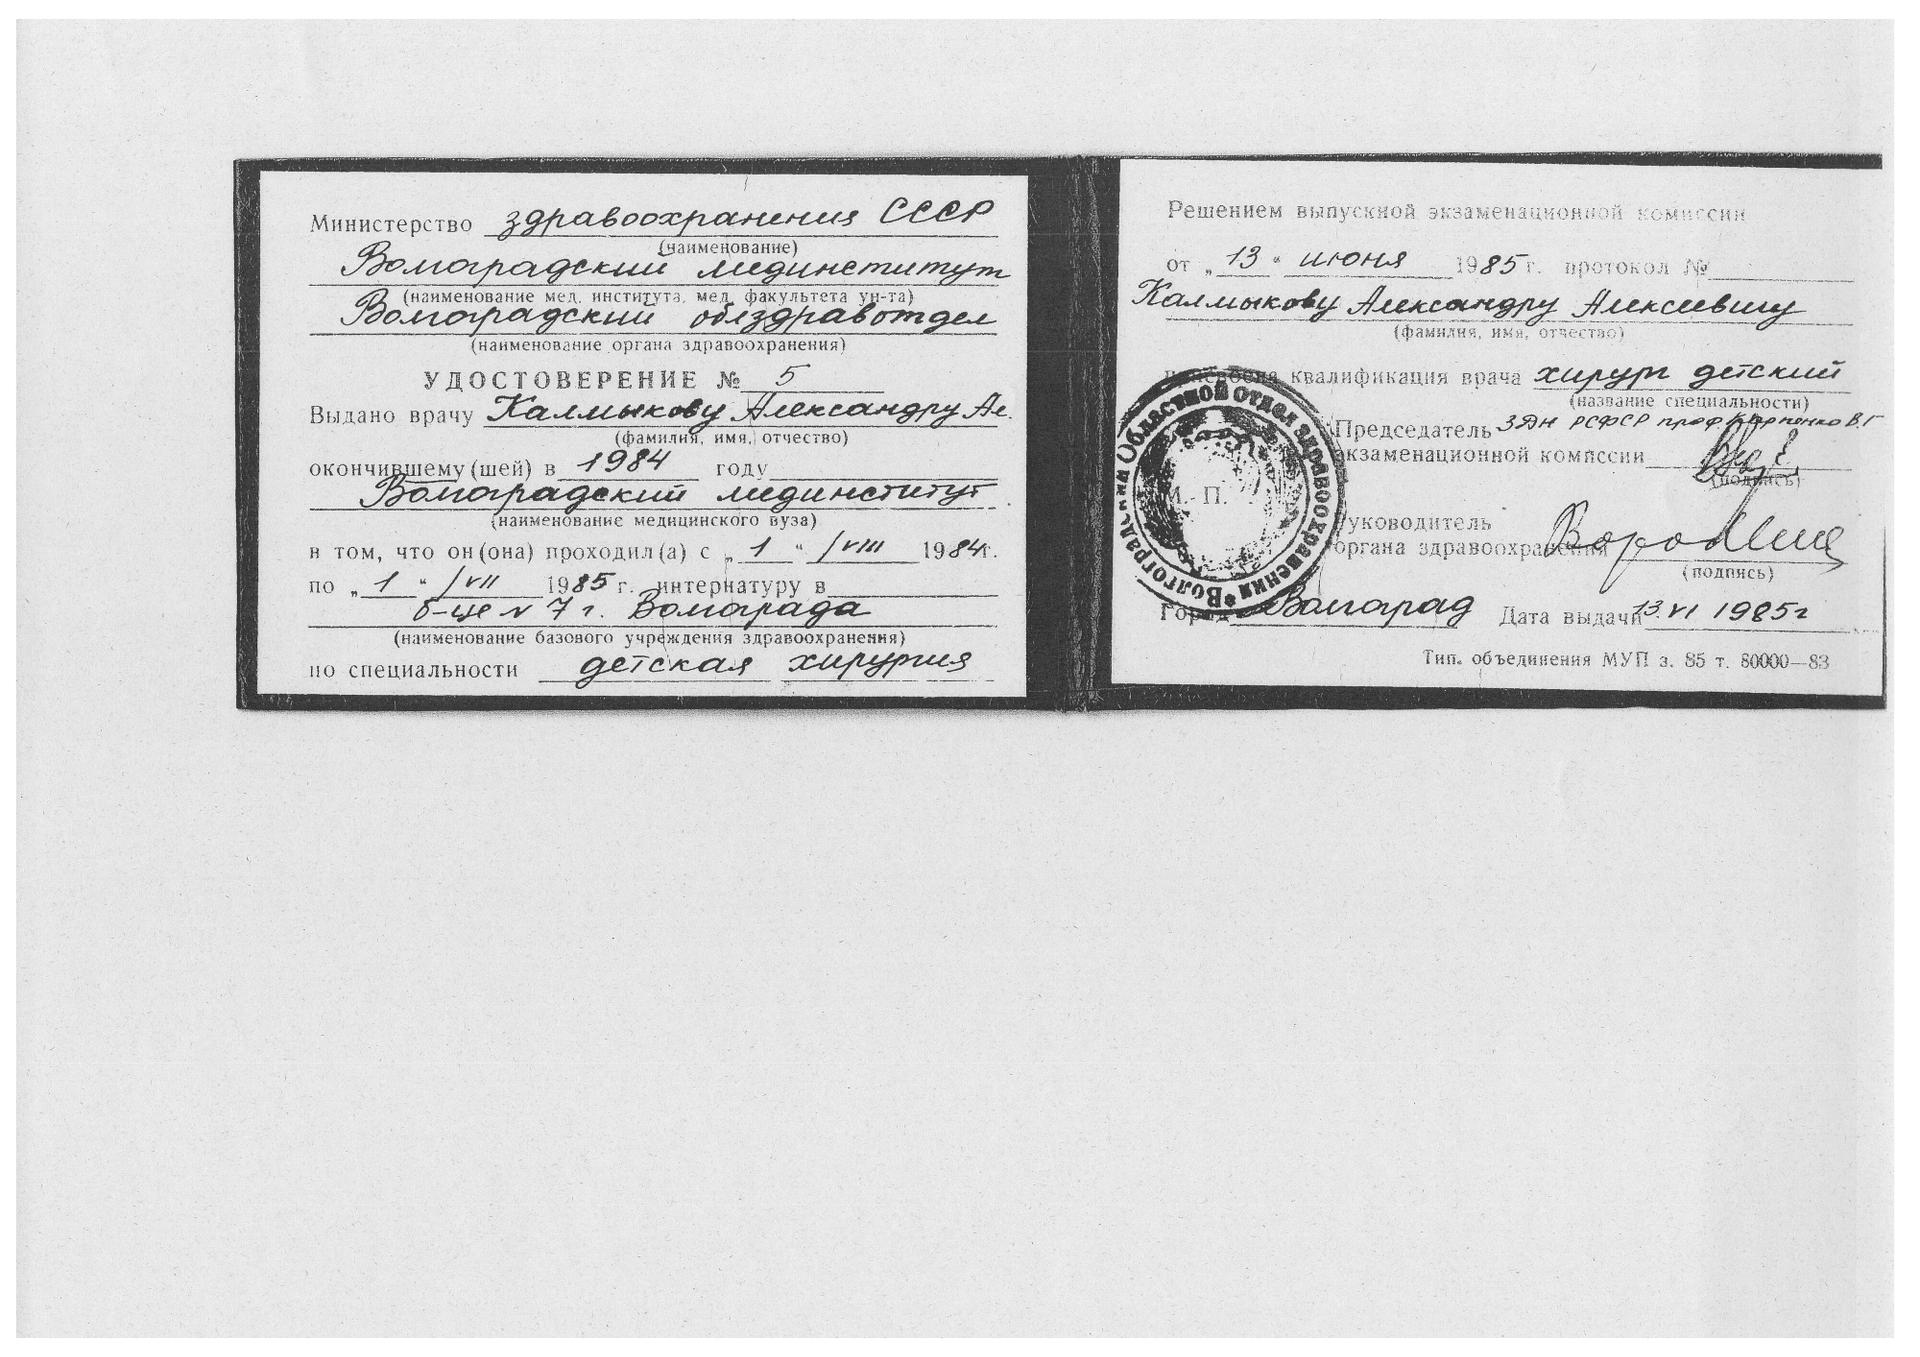 Министерство здравоохранения СССР
(наименование)
Волгоградский мединститут
(наименование мед. института, мед. факультета ун-та)
Волгоградский облздравотдел
(наименование органа здравоохранения)
УДОСТОВЕРЕНИЕ № 5
Выдано врачу Калмыкову Александру Ал.
(фамилия, имя, отчество)
окончившему (шей) в 1984 году
Волгоградский мединститут
(наименование медицинского вуза)
в том, что он (она) проходил (а) с „1“ /VIII 1984г.
по „1“ /VII 1985 г. интернатуру в
б-це N 7 г. Волгограда
(наименование базового учреждения здравоохранения)
по специальности детская хирургия
Решением выпускной экзаменационной комиссии
от „13“ июня 1985 г. протокол №
Калмыкову Александру Алексеевичу
(фамилия, имя, отчество)
присвоена квалификация врача хирург детский
(название специальности)
Председатель ЗДН РСФСР проф. Карпенко В.Г
экзаменационной комиссии
(подпись)
М. П.
Руководитель
органа здравоохранения
(подпись)
Город Волгоград Дата выдачи 13 VI 1985г
Тип. объединения МУП з. 85 т. 80000—83
Волгоградский Областной Отдел здравоохранения